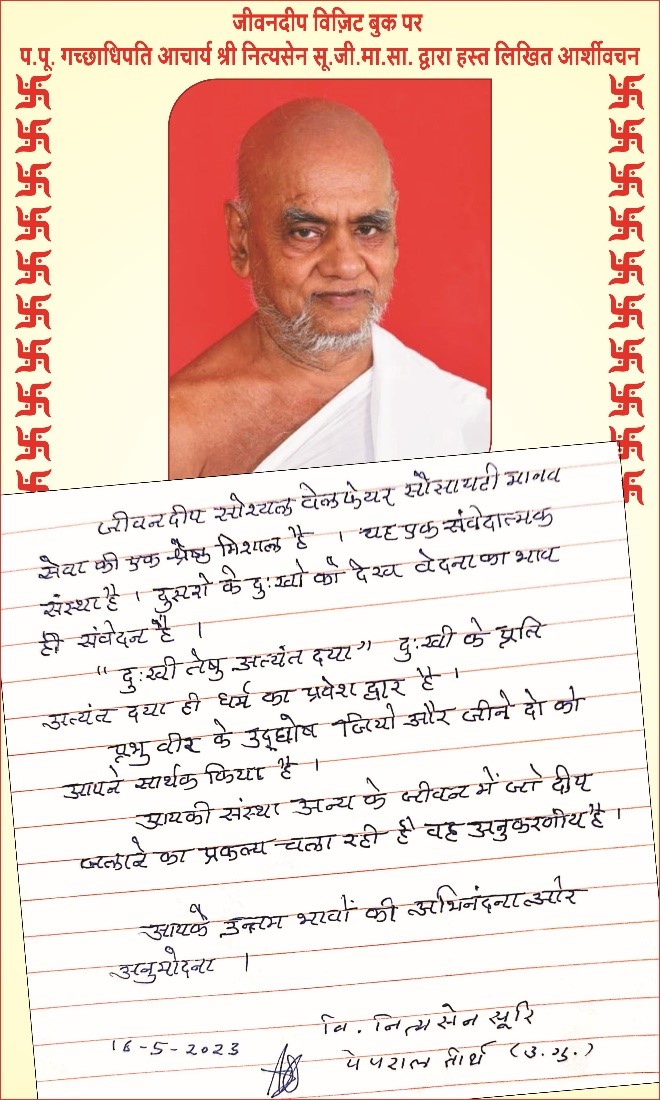 जीवनदीप विज़िट बुक पर
प.पू. गच्छाधिपति आचार्य श्री नित्यसेन सू.जी.मा.सा. द्वारा हस्त लिखित आर्शीवचन
जीवनदीप सोश्यल वेलफेयर सौसायटी मानव
सेवा की एक श्रेष्ठ मिशाल है । यह एक संवेदात्मक
संस्था है । दुसरो के दुःखो को देख वेदना का भाव
ही संवेदन है ।
"दुःखी तेषु अत्यंत दया" दुःखी के प्रति
अत्यंत दया ही धर्म का प्रवेश द्वार है ।
प्रभु वीर के उद्घोष जियो और जीने दो को
आपने सार्थक किया है ।
आपकी संस्था अन्य के जीवन में जो दीप
जलाने का प्रकल्प चला रही है वह अनुकरणीय है ।
आपके उत्तम भावों की अभिनंदना और
अनुमोदना ।
वि. नित्यसेन सूरि
16-5-2023
पेपराल तीर्थ (उ.गु.)